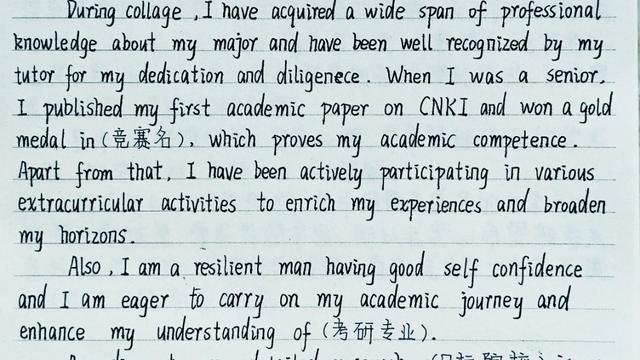 During collage, I have acquired a wide span of professional
knowledge about my major and have been well recognized by my
tutor for my dedication and diligenece. When I was a senior,
I published my first academic paper on CNKI and won a gold
medal in (竞赛名), which proves my academic competence.
Apart from that, I have been actively participating in various
extracurricular activities to enrich my experiences and broaden
my horizons.
Also, I am a resilient man having good self confidence
and I am eager to carry on my academic journey and
enhance my understanding of (考研专业).